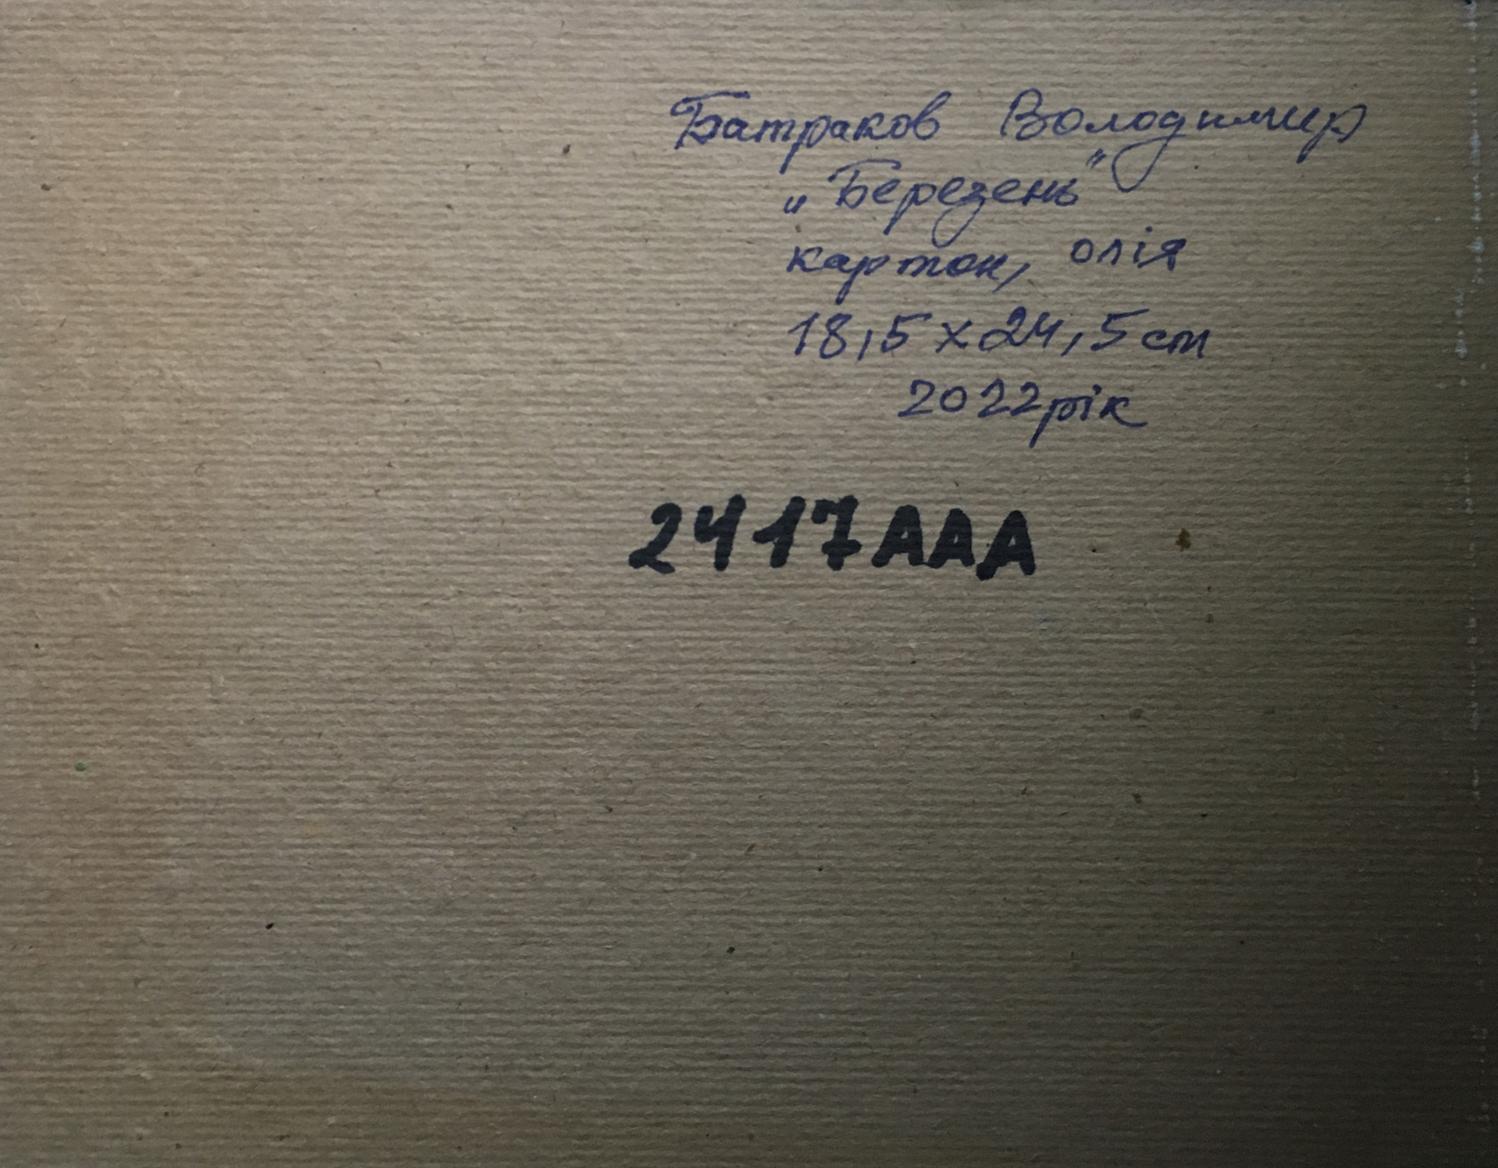 Батраков Володимир
„Березень"
картон, олія
18,5 х 24,5 см
2022 рік
2417ААА